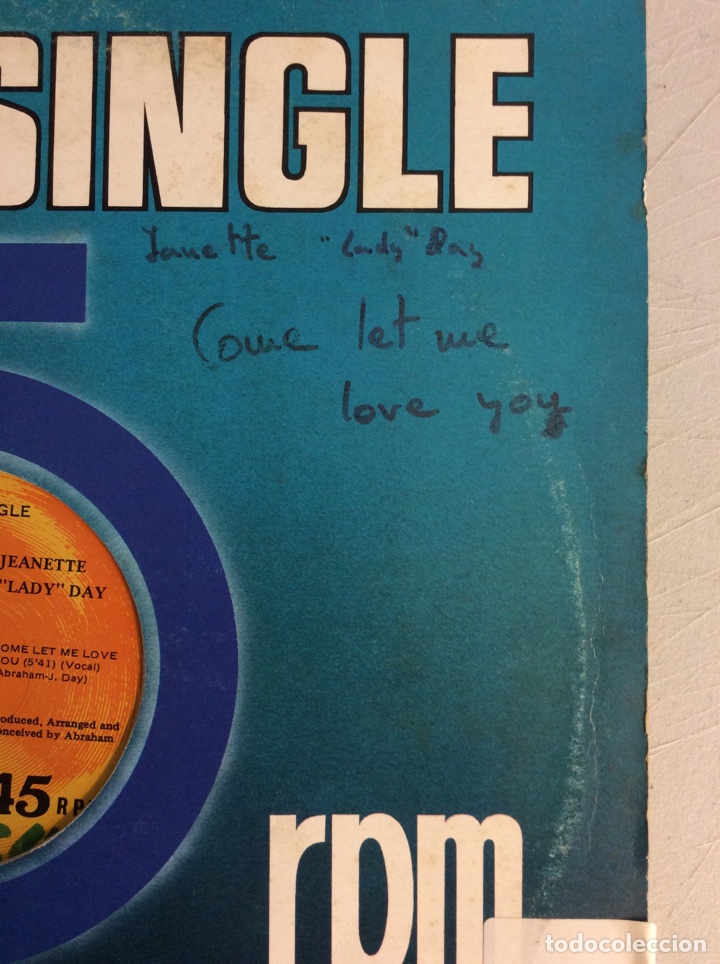 SINGLE
Janette "Lady" Day
Come let me
love you
GLE
JEANETTE
"LADY" DAY
OME LET ME LOVE
OU (5'41) (Vocal)
Abraham-J. Day)
oduced, Arranged and
onceived by Abraham
45 RP
rpm
todocoleccion